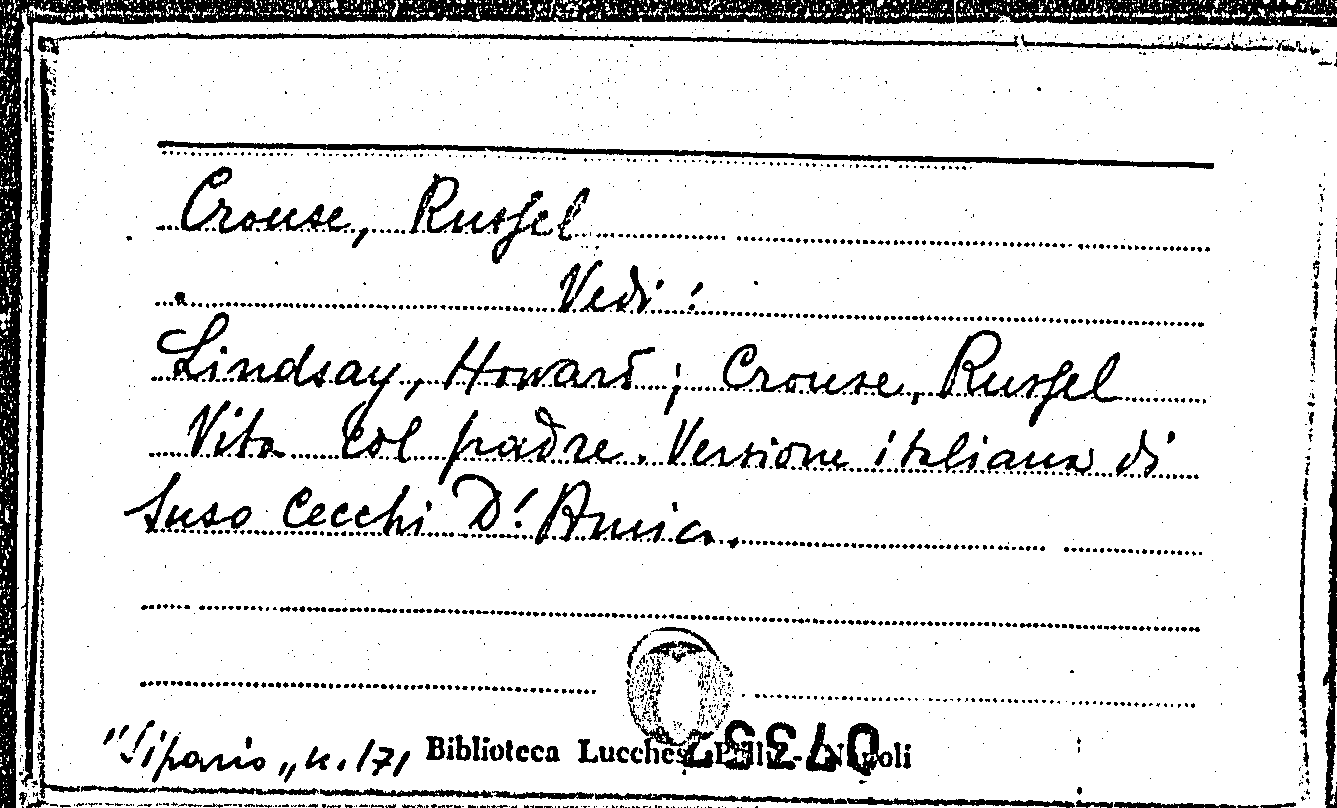 Crouse, Russel
Vedi:
Lindsay, Howard; Crouse, Russel
Vita col padre. Versione italiana di
Suso Cecchi D'Amico.
"Sipario" n. 171 Biblioteca Lucchesi Palli - Napoli